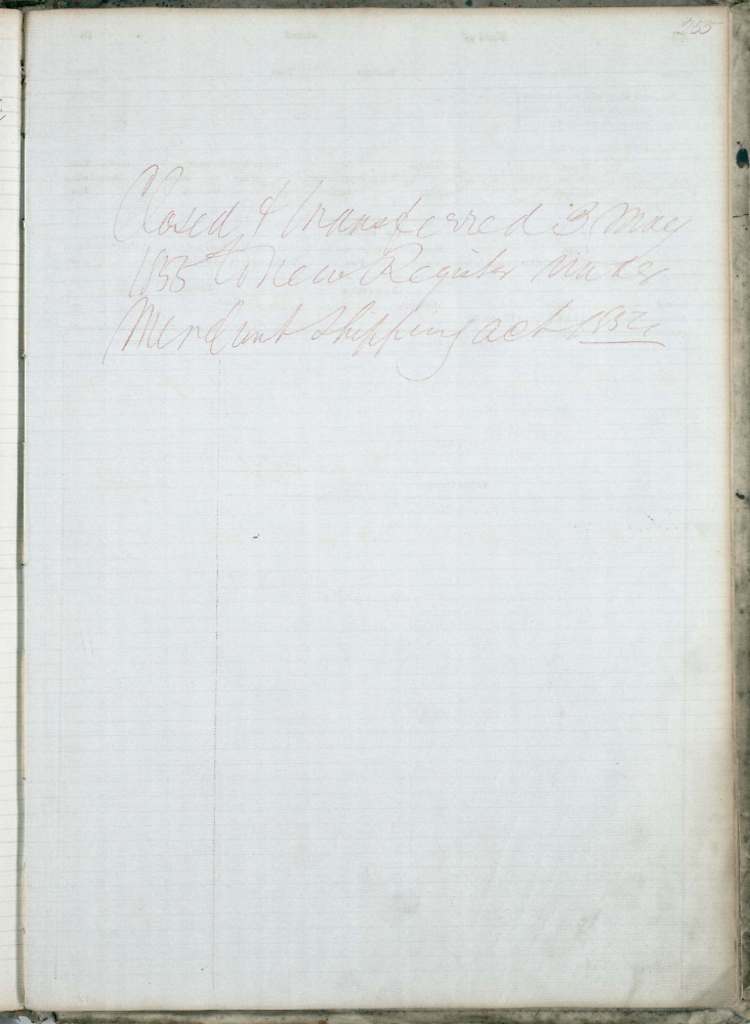 255
Closed & transferred 3 May
1855 to New Register under
Merchant Shipping act 1854